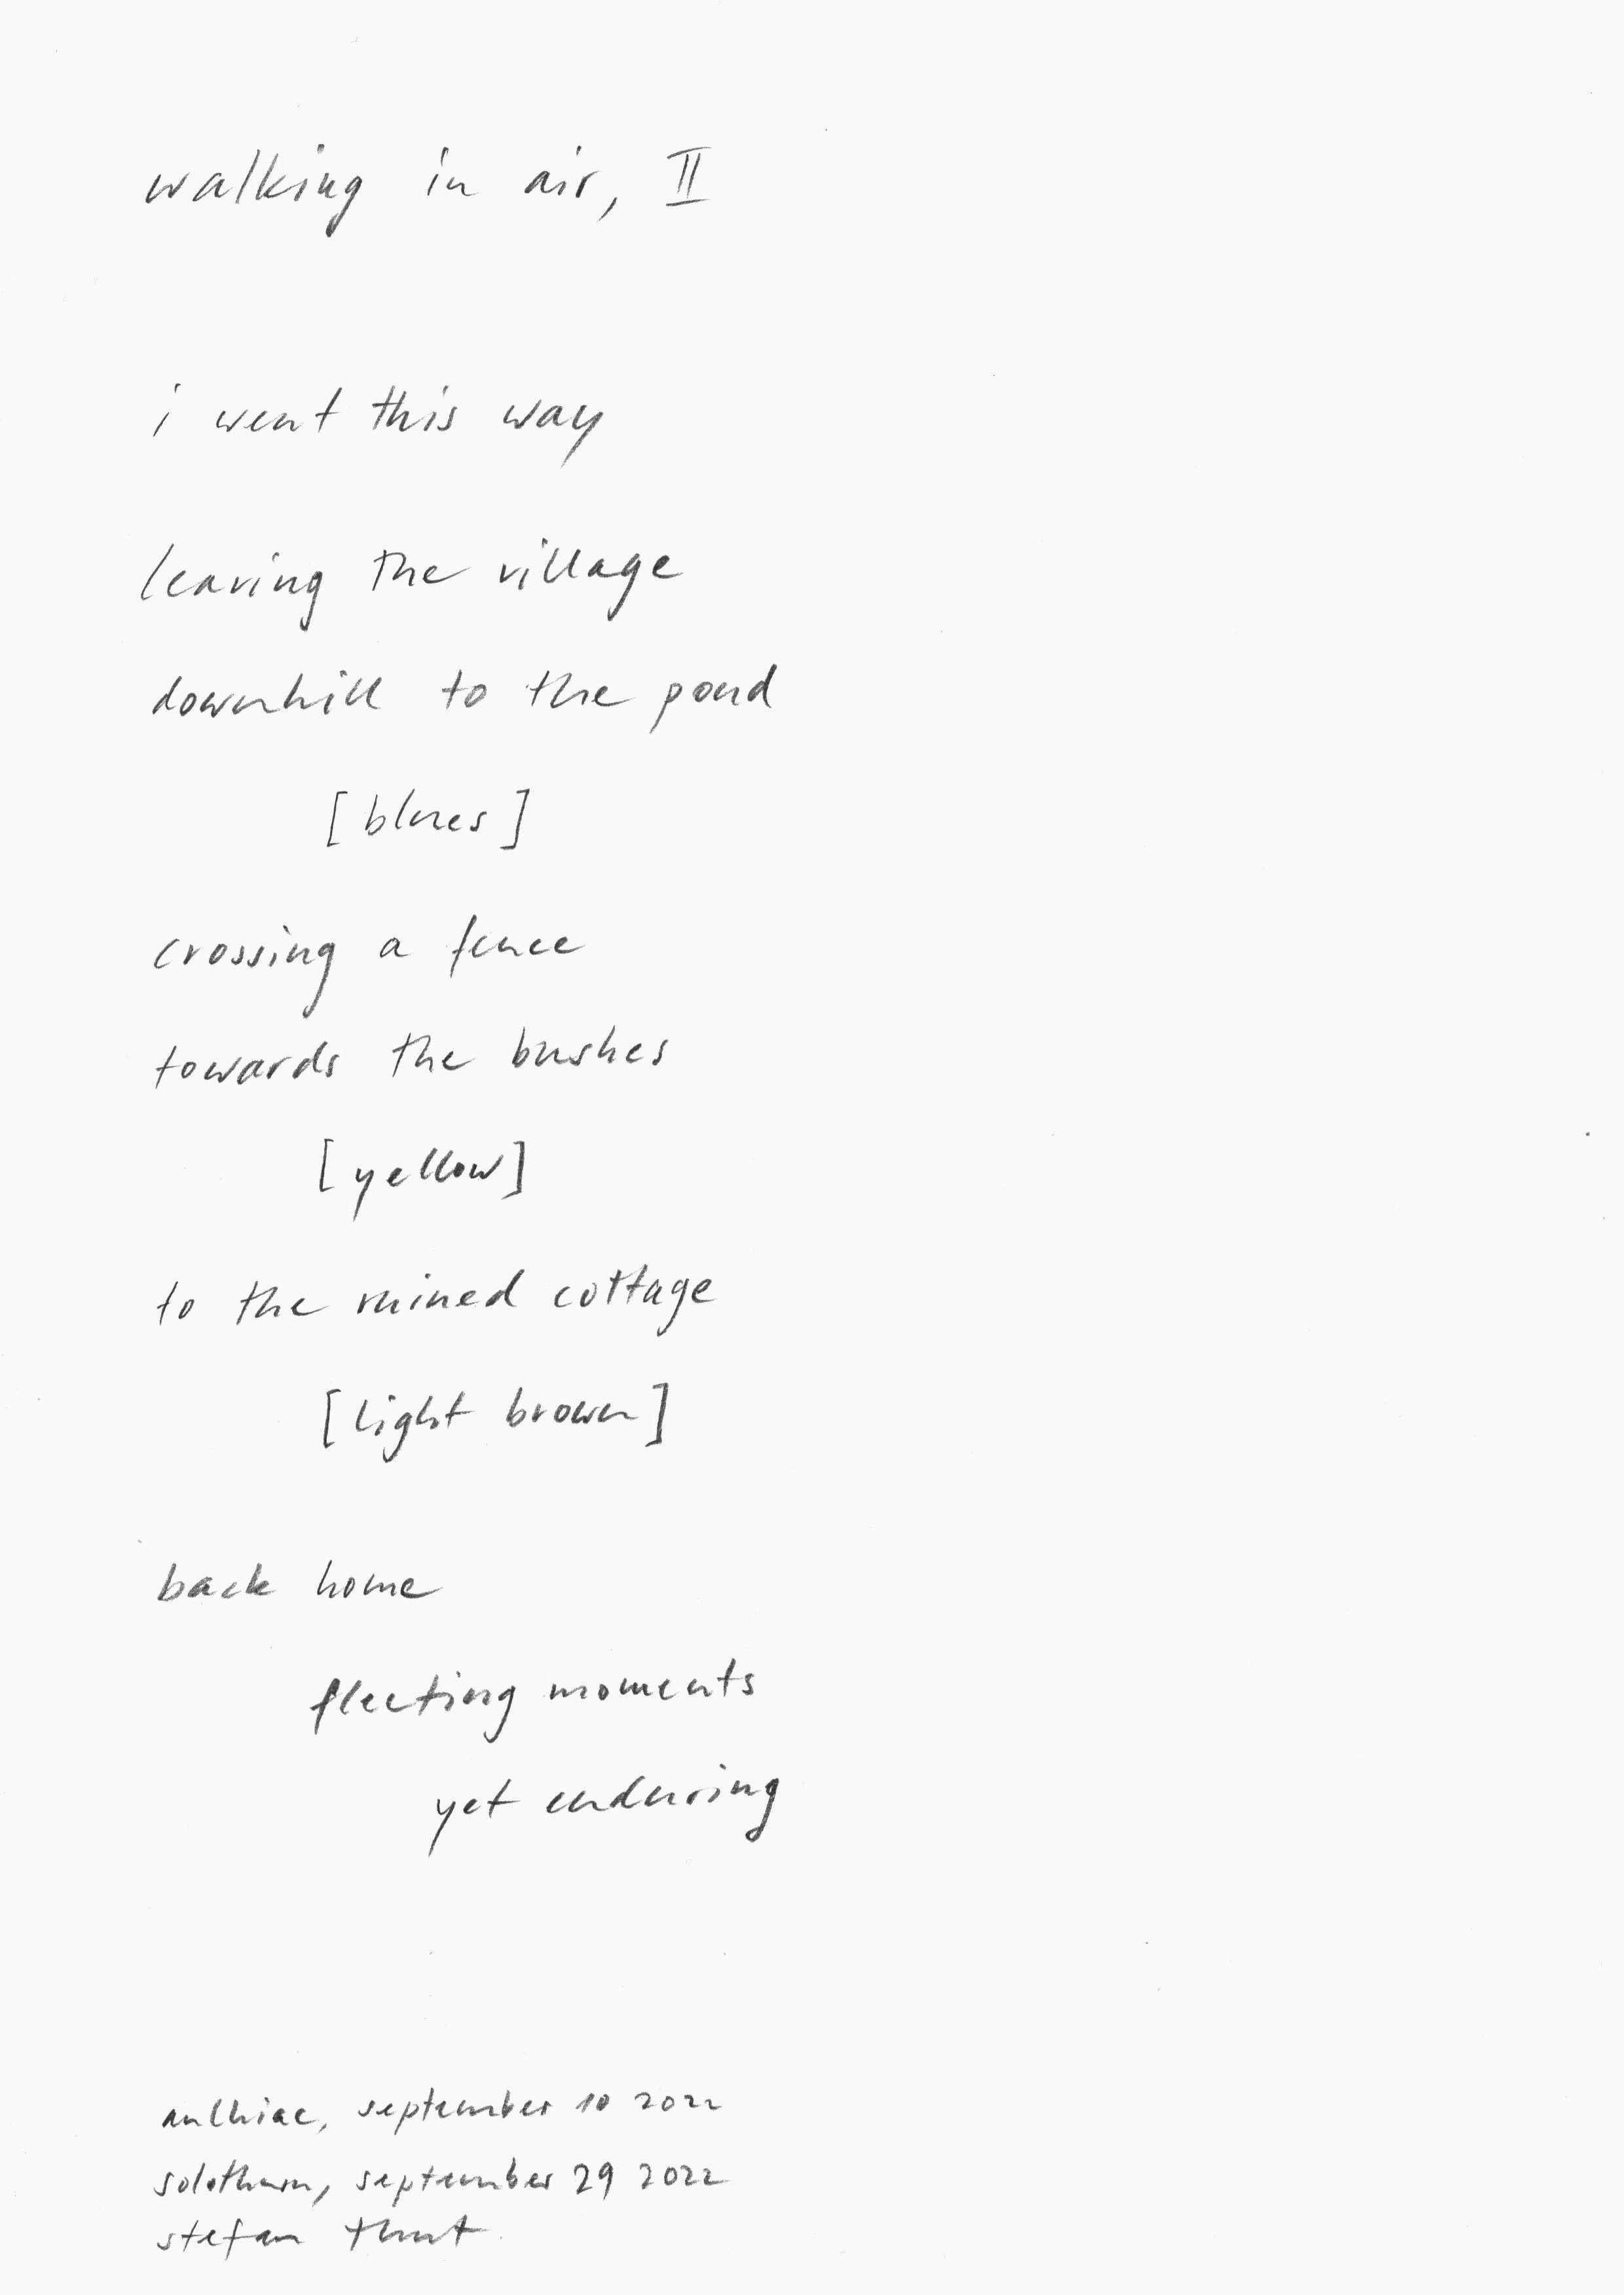 walking in air, II
i went this way
leaving the village
downhill to the pond
[blues]
crossing a fence
towards the bushes
[yellow]
to the ruined cottage
[light brown]
back home
fleeting moments
yet enduring
aulhiac, september 10 2022
solothurn, september 29 2022
stefan thut